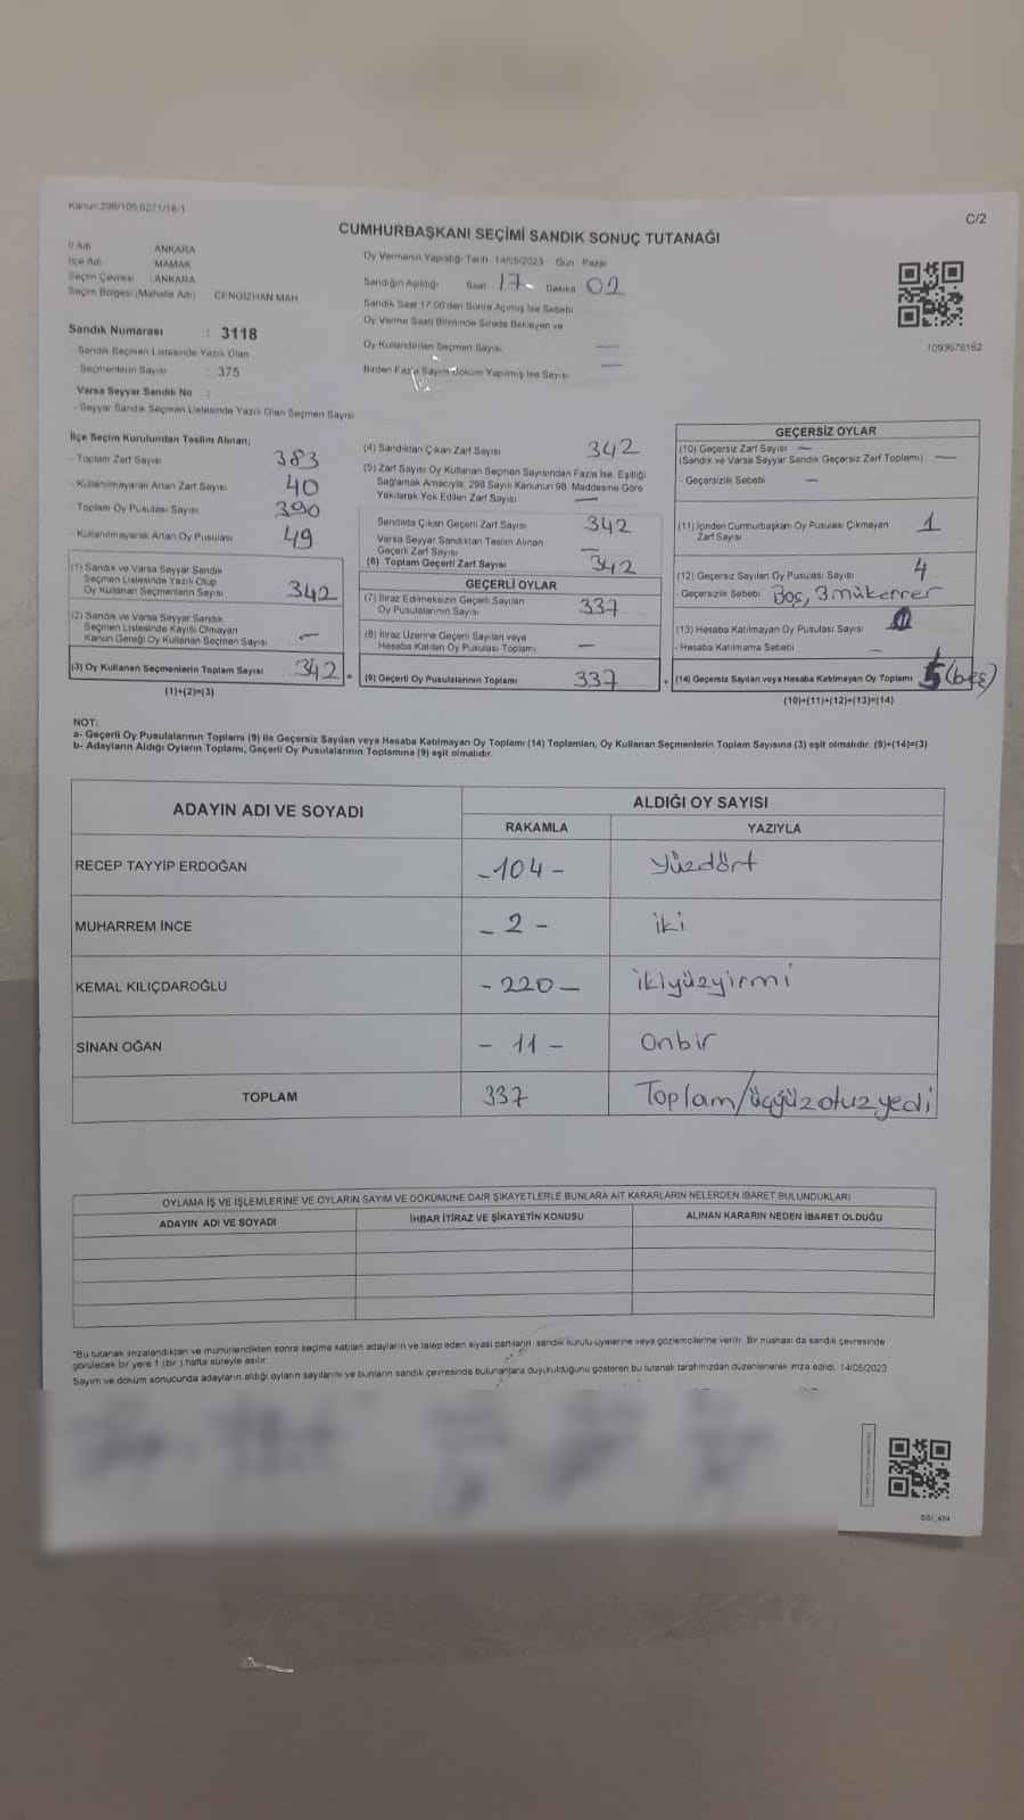 Kanun:298/105,6271/18/1
C/2
CUMHURBAŞKANI SEÇİMİ SANDIK SONUÇ TUTANAĞI
İl Adı ANKARA
İlçe Adı MAMAK
Seçim Çevresi ANKARA
Seçim Bölgesi (Mahalle Adı) CENGİZHAN MAH
Sandık Numarası : 3118
Sandık Seçmen Listesinde Yazılı Olan
Seçmenlerin Sayısı : 375
Varsa Seyyar Sandık No :
- Seyyar Sandık Seçmen Listesinde Yazılı Olan Seçmen Sayısı
Oy Vermenin Yapıldığı Tarih 14/05/2023 Gün Pazar
Sandığın Açıldığı Saat 17 Dakika 02
Sandık Saat 17:00'den Sonra Açılmış İse Sebebi
Oy Verme Saati Bitiminde Sırada Bekleyen ve
Oy Kullandırılan Seçmen Sayısı —
Birden Fazla Sayım Döküm Yapılmış İse Sayısı —
1093678162
İlçe Seçim Kurulundan Teslim Alınan;
- Toplam Zarf Sayısı 383
- Kullanılmayarak Artan Zarf Sayısı 40
Toplam Oy Pusulası Sayısı 390
- Kullanılmayarak Artan Oy Pusulası 49
(1) Sandık ve Varsa Seyyar Sandık
Seçmen Listesinde Yazılı Olup
Oy Kullanan Seçmenlerin Sayısı 342
(2) Sandık ve Varsa Seyyar Sandık
Seçmen Listesinde Kayıtlı Olmayan
Kanun Gereği Oy Kullanan Seçmen Sayısı —
(3) Oy Kullanan Seçmenlerin Toplam Sayısı 342
(1)+(2)=(3)
(4) Sandıktan Çıkan Zarf Sayısı 342
(5) Zarf Sayısı Oy Kullanan Seçmen Sayısından Fazla İse, Eşitliği
Sağlamak Amacıyla, 298 Sayılı Kanunun 98. Maddesine Göre
Yakılarak Yok Edilen Zarf Sayısı —
Sandıkta Çıkan Geçerli Zarf Sayısı 342
Varsa Seyyar Sandıktan Teslim Alınan
Geçerli Zarf Sayısı —
(6) Toplam Geçerli Zarf Sayısı 342
GEÇERLİ OYLAR
(7) İtiraz Edilmeksizin Geçerli Sayılan
Oy Pusulalarının Sayısı 337
(8) İtiraz Üzerine Geçerli Sayılan veya
Hesaba Katılan Oy Pusulası Toplamı —
= (9) Geçerli Oy Pusulalarının Toplamı 337
GEÇERSİZ OYLAR
(10) Geçersiz Zarf Sayısı —
(Sandık ve Varsa Seyyar Sandık Geçersiz Zarf Toplamı) —
- Geçersizlik Sebebi —
(11) İçinden Cumhurbaşkanı Oy Pusulası Çıkmayan
Zarf Sayısı 1
(12) Geçersiz Sayılan Oy Pusulası Sayısı 4
- Geçersizlik Sebebi Boş, 3 mükerrer
(13) Hesaba Katılmayan Oy Pusulası Sayısı
- Hesaba Katılmama Sebebi —
+ (14) Geçersiz Sayılan veya Hesaba Katılmayan Oy Toplamı 5 (beş)
(10)+(11)+(12)+(13)=(14)
NOT:
a- Geçerli Oy Pusulalarının Toplamı (9) ile Geçersiz Sayılan veya Hesaba Katılmayan Oy Toplamı (14) Toplamları, Oy Kullanan Seçmenlerin Toplam Sayısına (3) eşit olmalıdır. (9)+(14)=(3)
b- Adayların Aldığı Oyların Toplamı, Geçerli Oy Pusulalarının Toplamına (9) eşit olmalıdır.
ADAYIN ADI VE SOYADI
ALDIĞI OY SAYISI
RAKAMLA YAZIYLA
RECEP TAYYİP ERDOĞAN -104- Yüzdört
MUHARREM İNCE -2- iki
KEMAL KILIÇDAROĞLU -220- ikiyüzyirmi
SİNAN OĞAN -11- Onbir
TOPLAM 337 Toplam/üçyüzotuzyedi
OYLAMA İŞ VE İŞLEMLERİNE VE OYLARIN SAYIM VE DÖKÜMÜNE DAİR ŞİKAYETLERLE BUNLARA AİT KARARLARIN NELERDEN İBARET BULUNDUKLARI
ADAYIN ADI VE SOYADI İHBAR İTİRAZ VE ŞİKAYETİN KONUSU ALINAN KARARIN NEDEN İBARET OLDUĞU
"Bu tutanak imzalandıktan ve mühürlendikten sonra seçime katılan adayların ve talep eden siyasi partilerin sandık kurulu üyelerine veya gözlemcilerine verilir. Bir nüshası da sandık çevresinde
görülecek bir yere 1 (bir) hafta süreyle asılır.
Sayım ve döküm sonucunda adayların aldığı oyların sayılarını ve bunların sandık çevresinde bulunanlara duyurulduğunu gösteren bu tutanak tarafımızdan düzenlenerek imza edildi. 14/05/2023